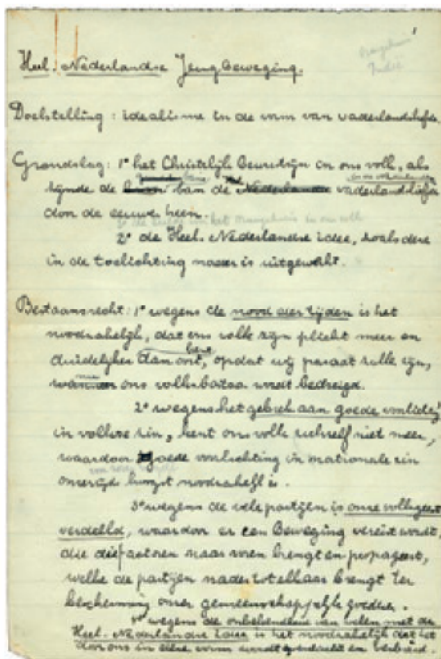 1
Oranjehuis
Indië
Heel-Nederlandse Jeugdbeweging.
Doelstelling: idealisme in de vorm van vaderlandsliefde
Grondslag: 1° het Christelijk Bewustzijn in ons volk, als
zijnde de ban de Nederlandse vaderlandsliefde
door de eeuwen heen.
2° de Heel-Nederlandse idee, zoals deze
in de toelichting nader is uitgewerkt.
Bestaansrecht: 1° wegens de nood der tijden is het
noodzakelijk, dat ons volk zijn plicht meer en
duidelijker dan ooit, opdat wij paraat zulle zijn,
ons volksbestaan wordt bedreigd.
2° wegens het gebrek aan goede voorlichting
in volkere zin, kent ons volk zichzelf niet meer,
waardoor goede voorlichting in nationale zin
noodzakelijk is.
3° wegens de vele partijen is onze volksgeest
verdeeld, waardoor er een Beweging vereist wordt,
die die factoren naar voren brengt en propageert,
welke de partijen nader tot elkaar brengt ter
bescherming onzer gemeenschappelijke goederen.
4° wegens de onbekendheid van velen met de
Heel-Nederlandse idee is het noodzakelijk dat het
door ons in elke vorm wordt en verbreid.